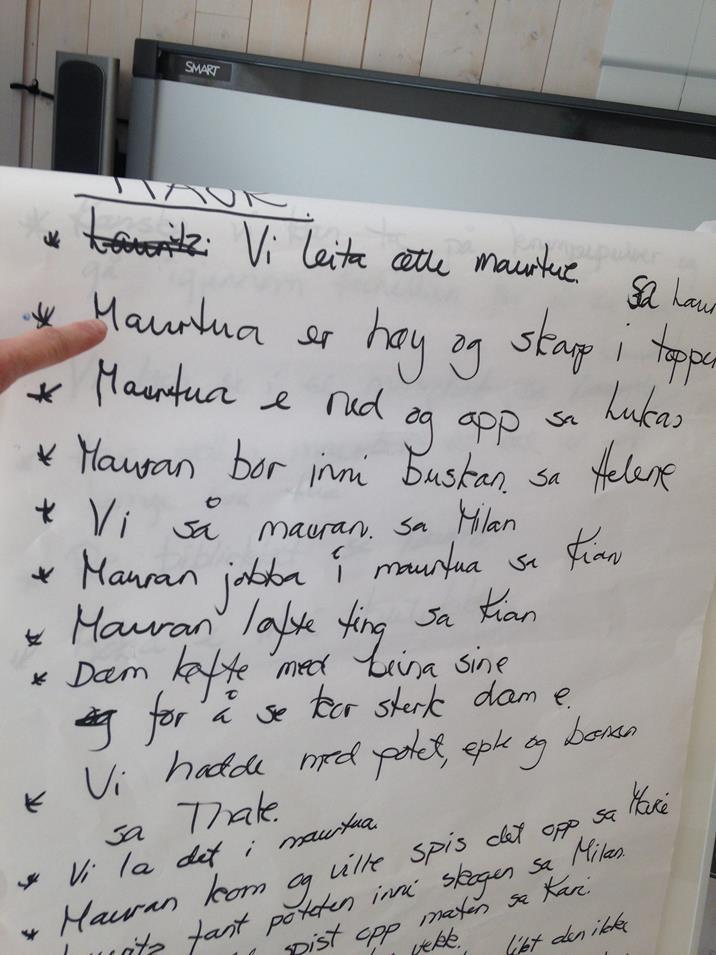 SMART
MAUR.
* Lauritz. Vi leita ætte maurtue. sa Laur
* Maurtua er høy og skarp i toppen
* Maurtua e ned og opp sa Lukas
* Mauran bor inni buskan. sa Helene
* Vi så mauran. sa Milan
* Mauran jobba i maurtua sa Kian
* Mauran løfte ting sa Kian
* Dæm løfte med beina sine
og for å se kor sterk dæm e.
Vi hadde med potet, eple og banan
* sa Thale.
* Vi la det i maurtua.
* Mauran kom og ville spis det opp sa
Lauritz fant poteten inni skogen sa Milan.
spist opp maten sa Kari.
vekk. likt den ikke